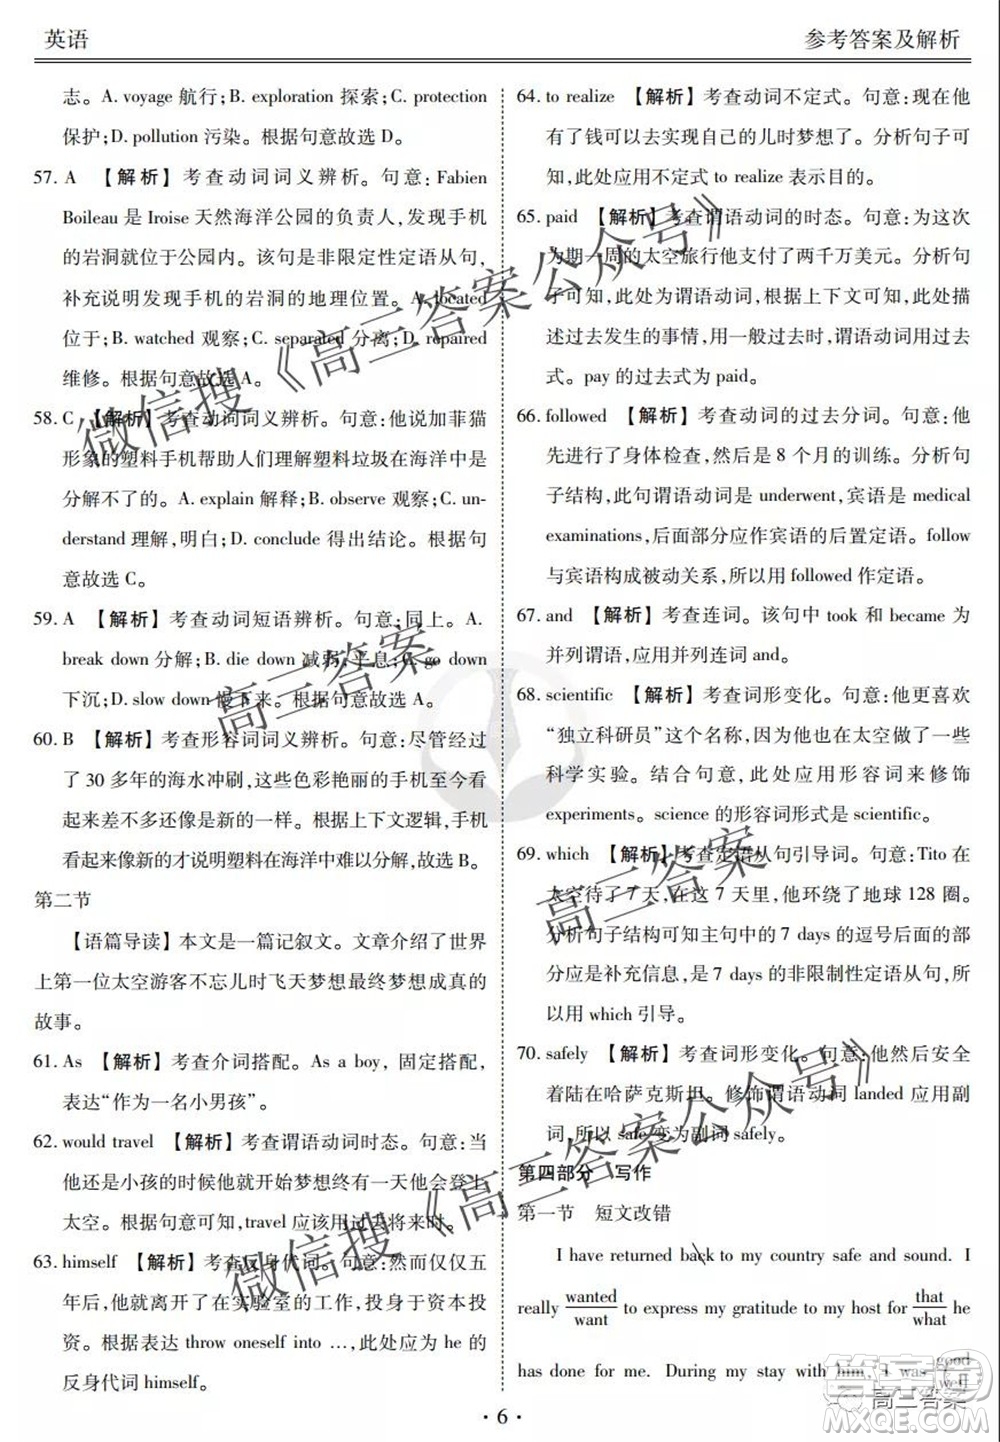 英语
参考答案及解析
志。A. voyage 航行；B. exploration 探索；C. protection
保护；D. pollution 污染。根据句意故选 D。
57. A 【解析】考查动词词义辨析。句意：Fabien
Boileau 是 Iroise 天然海洋公园的负责人，发现手机
的岩洞就位于公园内。该句是非限定性定语从句，
补充说明发现手机的岩洞的地理位置。A. located
位于；B. watched 观察；C. separated 分离；D. repaired
维修。根据句意故选 A。
58. C 【解析】考查动词词义辨析。句意：他说加菲猫
形象的塑料手机帮助人们理解塑料垃圾在海洋中是
分解不了的。A. explain 解释；B. observe 观察；C. un-
derstand 理解，明白；D. conclude 得出结论。根据句
意故选 C。
59. A 【解析】考查动词短语辨析。句意：同上。A.
break down 分解；B. die down 减弱；平息；C. go down
下沉；D. slow down 慢下来。根据句意故选 A。
60. B 【解析】考查形容词词义辨析。句意：尽管经过
了 30 多年的海水冲刷，这些色彩艳丽的手机至今看
起来差不多还像是新的一样。根据上下文逻辑，手机
看起来像新的才说明塑料在海洋中难以分解，故选 B。
第二节
【语篇导读】本文是一篇记叙文。文章介绍了世界
上第一位太空游客不忘儿时飞天梦想最终梦想成真的
故事。
61. As 【解析】考查介词搭配。As a boy，固定搭配，
表达“作为一名小男孩”。
62. would travel 【解析】考查谓语动词时态。句意：当
他还是小孩的时候他就开始梦想有一天他会登上
太空。根据句意可知，travel 应该用过去将来时。
63. himself 【解析】考查反身代词。句意：然而仅仅五
年后，他就离开了在实验室的工作，投身于资本投
资。本题考查表达 throw oneself into …，此处应为 he 的
反身代词 himself。
64. to realize 【解析】考查动词不定式。句意：现在他
有了钱可以去实现自己的儿时梦想了。分析句子可
知，此处应用不定式 to realize 表示目的。
65. paid 【解析】考查谓语动词的时态。句意：为这次
为期一周的太空旅行他支付了两千万美元。分析句
子可知，此处为谓语动词，根据上下文可知，此处描
述过去发生的事情，用一般过去时，谓语动词用过去
式。pay 的过去式为 paid。
66. followed 【解析】考查动词的过去分词。句意：他
先是做了身体检查，然后是 8 个月的训练。分析句
子结构，此句谓语动词是 underwent，宾语是 medical
examinations，后面部分应作宾语的后置定语。follow
与宾语构成被动关系，所以用 followed 作定语。
67. and 【解析】考查连词。该句中 took 和 became 为
并列谓语，应用并列连词 and。
68. scientific 【解析】考查词形变化。句意：他更喜欢
“独立科研员”这个名称，因为他在太空做了一些
科学实验。结合句意，此处应用形容词来修饰
experiments。science 的形容词形式是 scientific。
69. which 【解析】考查定语从句引导词。句意：Tito 在
太空待了 7 天，在这 7 天里，他环绕了地球 128 圈。
分析句子结构可知主句中的 7 days 的逗号后面的部
分应是补充信息，是 7 days 的非限制性定语从句，所
以用 which 引导。
70. safely 【解析】考查词形变化。句意：他后来安全
着陆在哈萨克斯坦。修饰谓语动词 landed 应用副
词，所以 safe 变为副词 safely。
第四部分 写作
第一节 短文改错
I have returned back to my country safe and sound. I
really wanted to express my gratitude to my host for that he
want what
has done for me. During my stay with him, I was good
well
· 6 ·
微信搜《高三答案公众号》
高三答案
高三答案
微信搜《高三答案公众号》
高三答案
答案圈
MXQE.COM